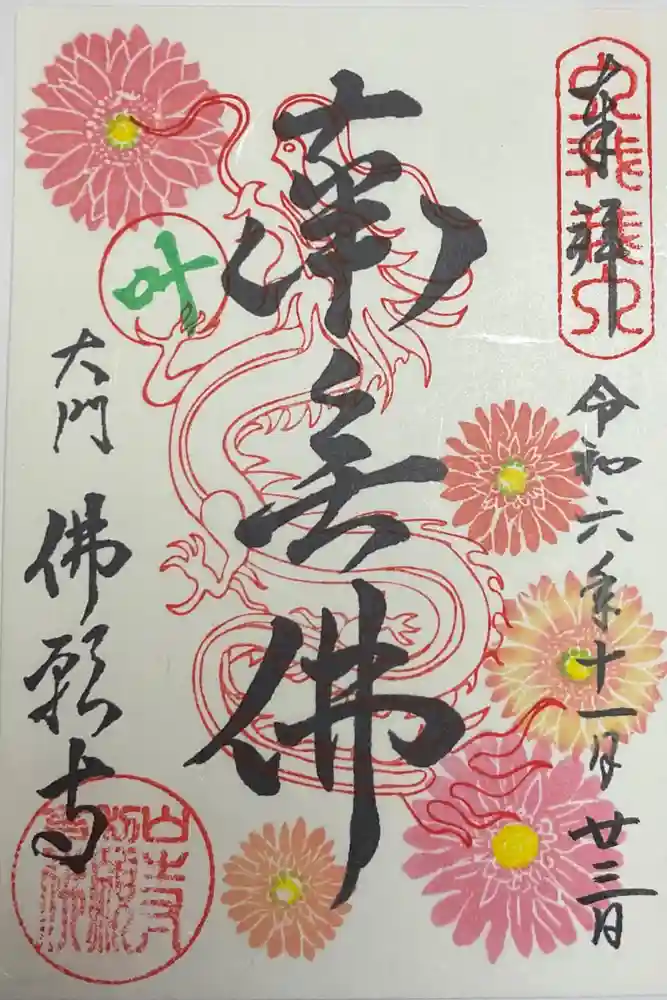 奉拝
令和六年十一月廿三日
南无佛
叶
大門 佛願寺